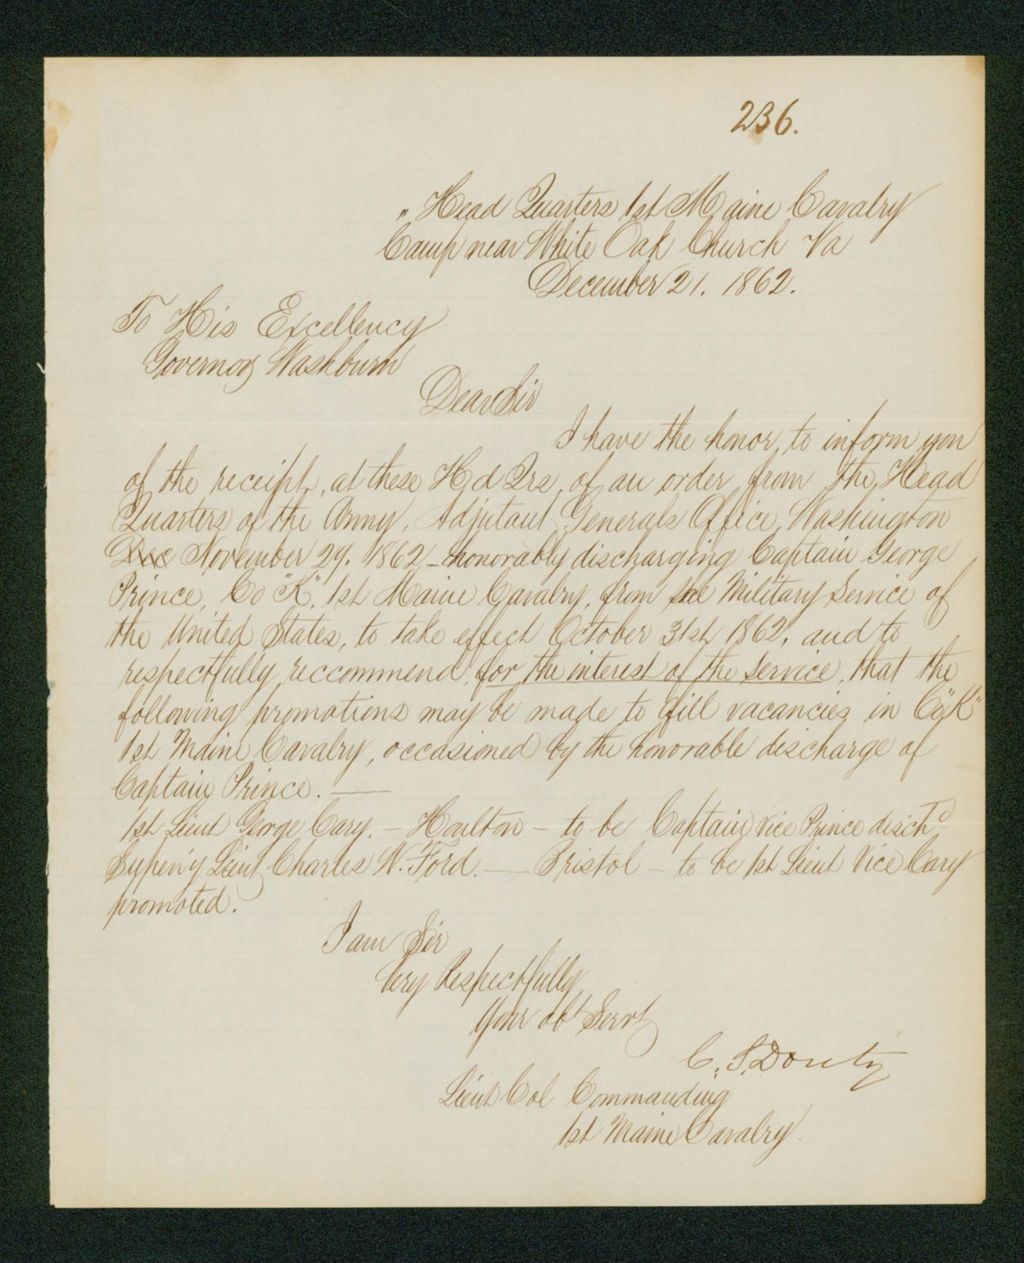 236.
" Head Quarters 1st Maine Cavalry
Camp near White Oak Church Va
December 21. 1862.
To His Excellency
Governor Washburn
Dear Sir
I have the honor, to inform you
of the receipt, at these Hd Qrs, of an order, from the Head
Quarters of the Army, Adjutant Generals Office, Washington
Dec November 29. 1862 - honorably discharging Captain George
Prince, Co "K", 1st Maine Cavalry, from the Military Service of
the United States, to take effect October 31st 1862, and to
respectfully reccommend, for the interest of the service, that the
following promotions may be made to fill vacancies in Co "K"
1st Maine Cavalry, occasioned by the honorable discharge of
Captain Prince. —
1st Lieut George Cary. - Houlton - to be Captain vice Prince dischd -
Superny Lieut Charles W. Ford. — Bristol - to be 1st Lieut Vice Cary
promoted.
I am Sir
Very Respectfully
Your obt Servt
C. S. Douty
Lieut Col Commanding
1st Maine Cavalry.